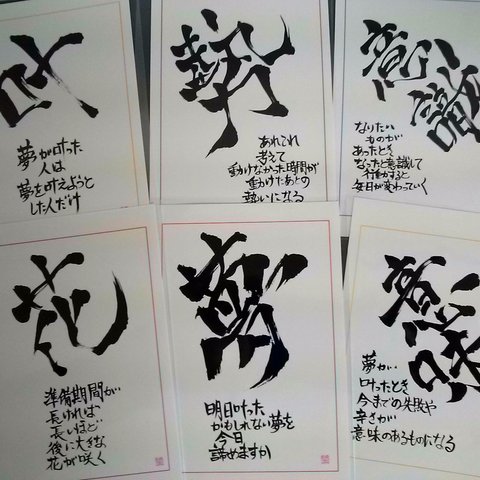 叶
夢が叶った
人は
夢を叶えようと
した人だけ
勢
あれこれ
考えて
動けなかった時間が
動けたあとの
勢いになる
意識
なりたい
ものが
あったとき
なったと意識して
行動すると
毎日が変わっていく
花
準備期間が
長ければ
長いほど
後に大きな
花が咲く
夢
明日叶った
かもしれない夢を
今日
諦めますか
意味
夢が
叶ったとき
今までの失敗や
辛さが
意味のあるものになる